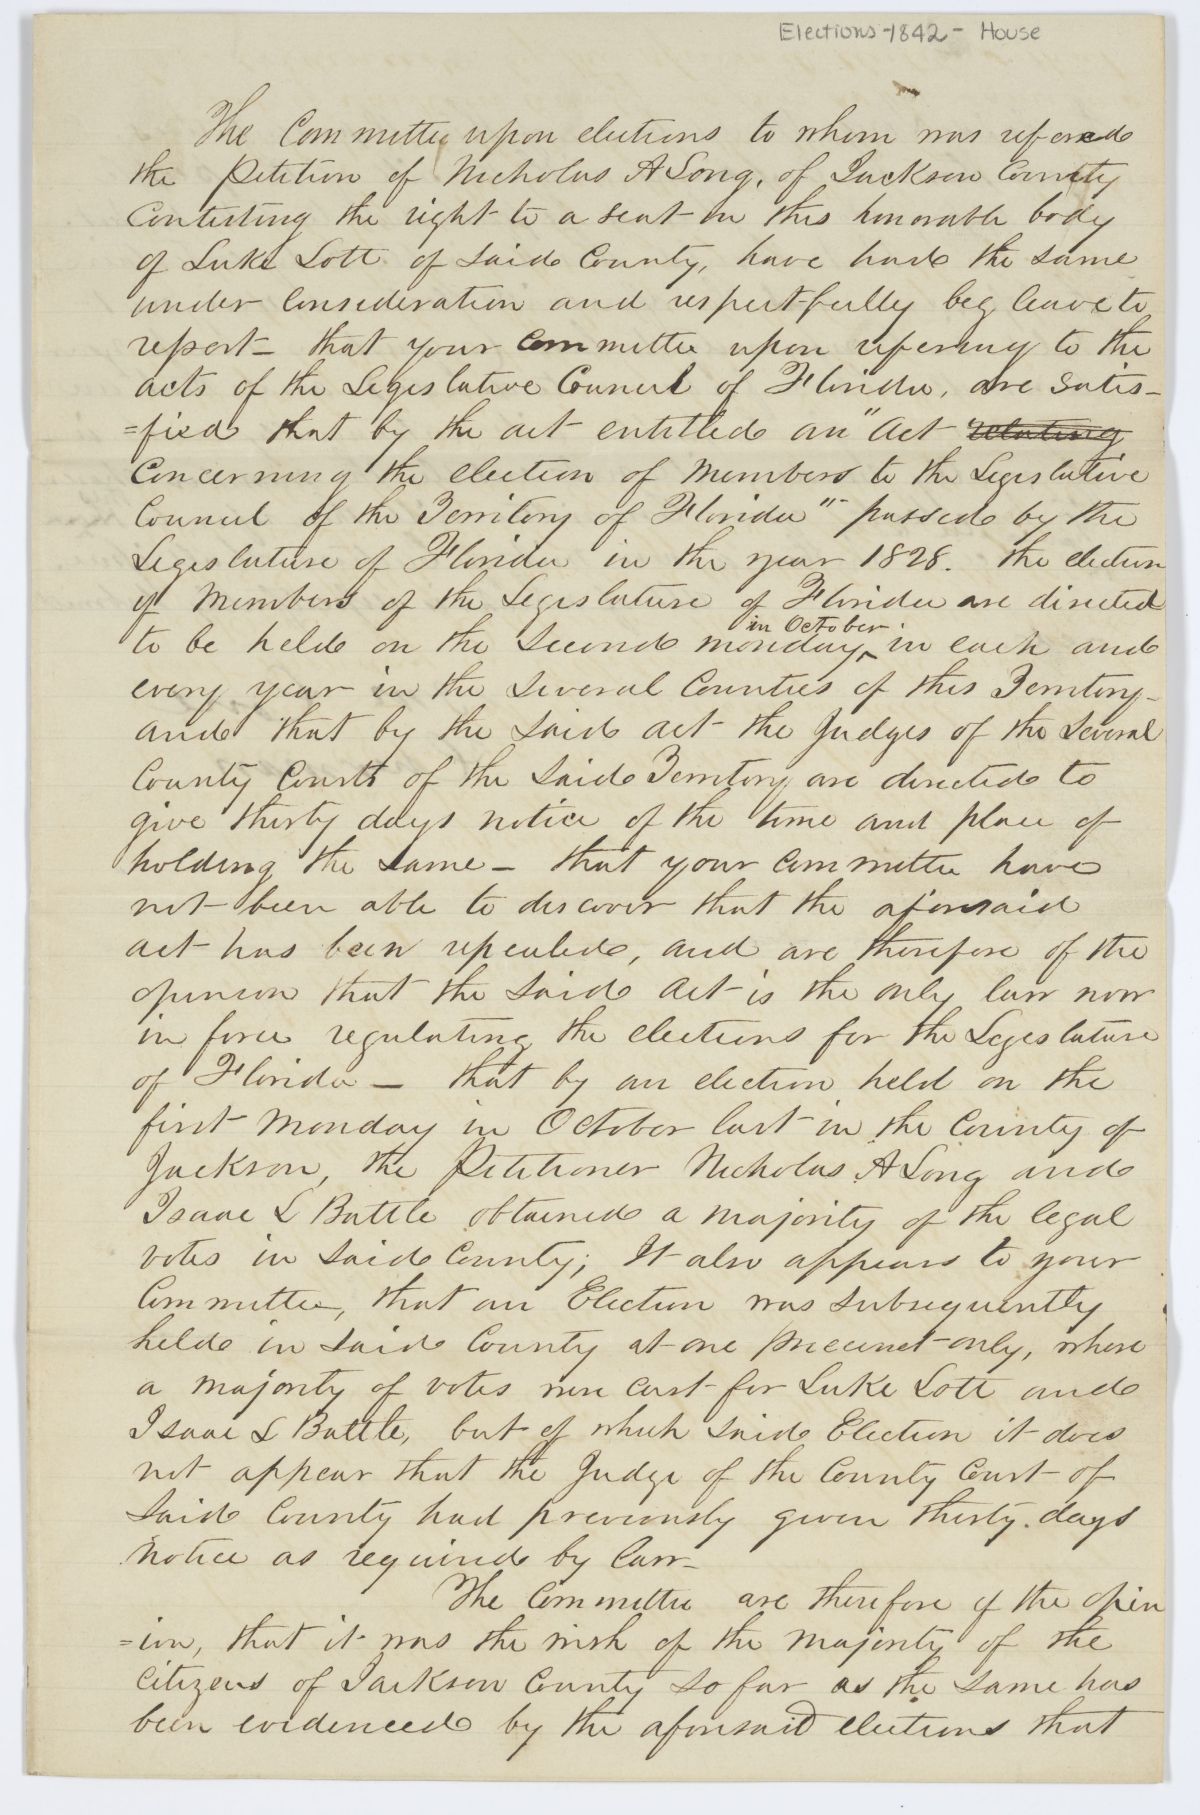 Elections - 1842 - House
The Committee upon elections to whom was refered
the Petition of Nicholas A Long, of Jackson County
Contesting the right to a seat in this honorable body
of Luke Lott of said County, have had the same
under Consideration and respectfully beg leave to
report - that your Committee upon refering to the
acts of the Legislative Council of Florida, are satis-
=fied that by the act entitled an "Act relating
Concerning the election of Members to the Legislative
Council of the Territory of Florida"" passed by the
Legislature of Florida in the year 1828. the election
of Members of the Legislature of Florida are directed
in October
to be held on the second monday ‸ in each and
every year in the several Counties of this Territory -
and that by the said act the Judges of the several
County Courts of the said Territory are directed to
give thirty days notice of the time and place of
holding the same - that your Committee have
not been able to discover that the aforesaid
act has been repealed, and are therefore of the
opinion that the said Act is the only law now
in force regulating the elections for the Legislature
of Florida - that by an election held on the
first Monday in October last in the County of
Jackson, the Petitioner Nicholas A Long and
Isaac L Battle obtained a majority of the legal
votes in said County; It also appears to your
Committee, that an Election was subsequently
held in said County at one precinct only, where
a majority of votes were cast for Luke Lott and
Isaac L Battle, but of which said Election it does
not appear that the Judge of the County Court of
said County had previously given thirty days
notice as required by Law -
The Committee are therefore of the opin
=ion, that it was the wish of the majority of the
Citizens of Jackson County so far as the same has
been evidenced by the aforesaid elections that